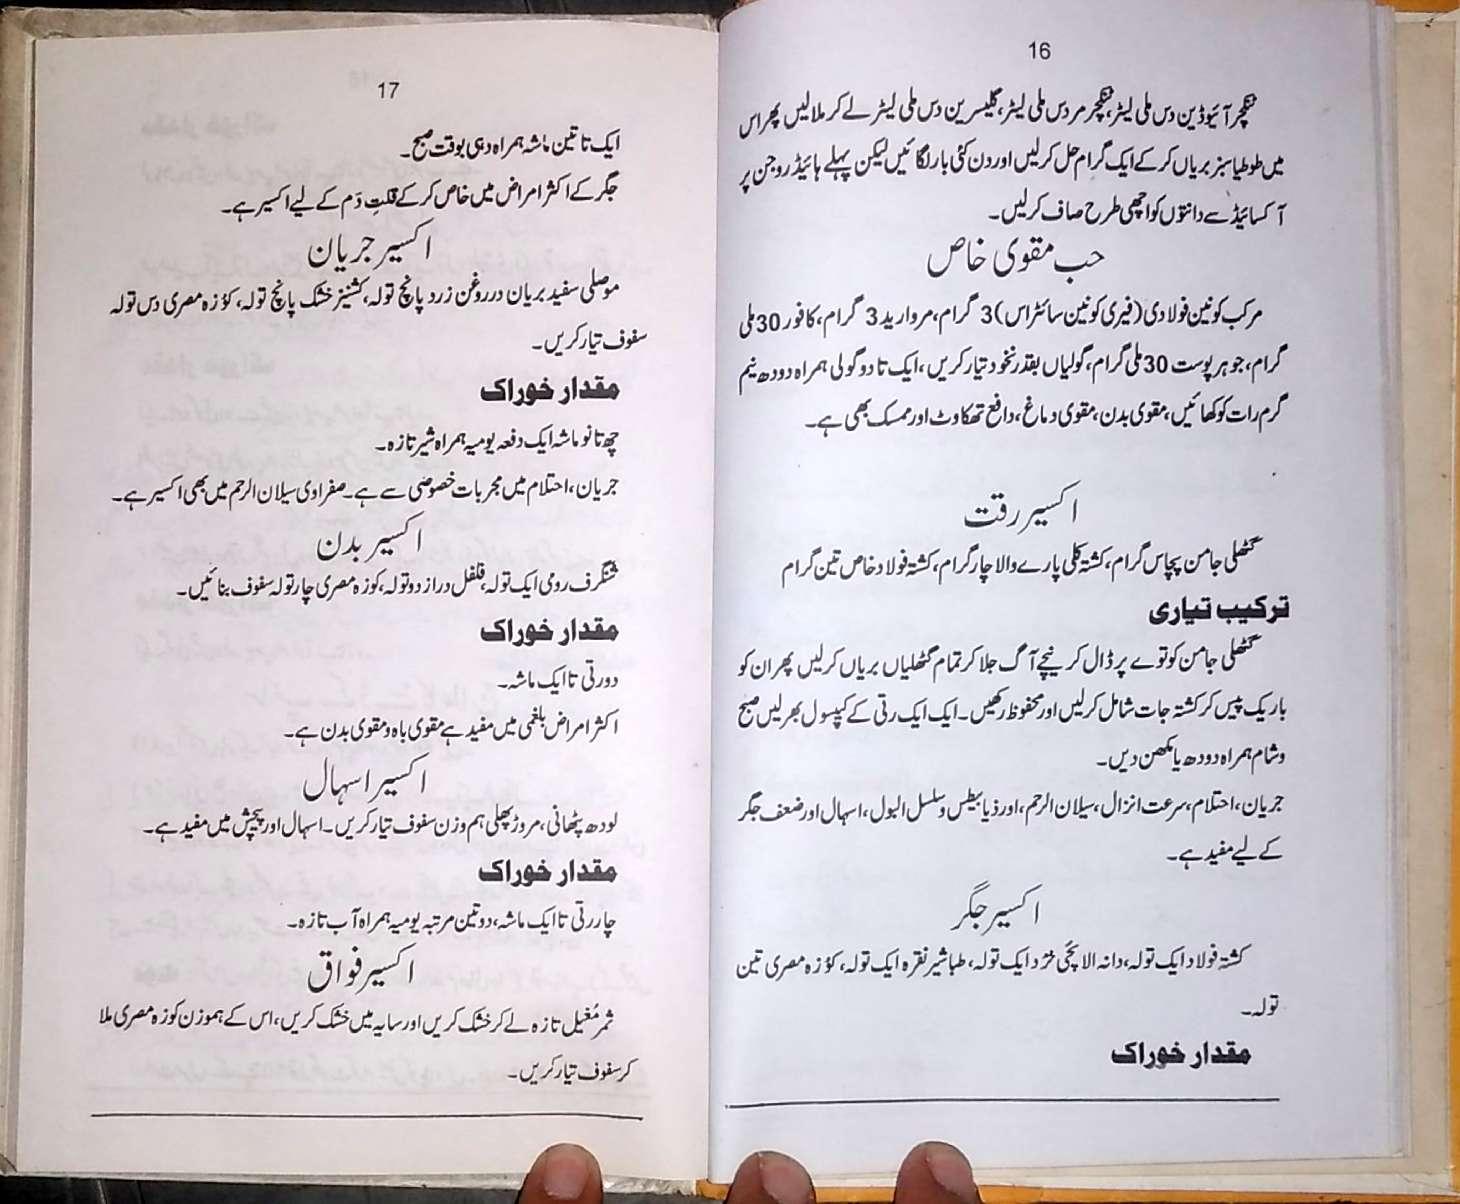 16
ٹنکچر آئیوڈین دس ملی لیٹر، ٹنکچر مر دس ملی لیٹر، گلیسرین دس ملی لیٹر لے کر ملا لیں پھر اس
میں طوطیا سبز بریاں کر کے ایک گرام حل کر لیں اور دن کئی بار لگائیں لیکن پہلے ہائیڈروجن پر
آکسائیڈ سے دانتوں کو اچھی طرح صاف کر لیں۔
حب مقوی خاص
مرکب کونین فولادی (فیری کونین سائٹراس) 3 گرام، مروارید 3 گرام، کافور 30 ملی
گرام، جوہر پوست 30 ملی گرام، گولیاں بقدر نخود تیار کریں، ایک تا دو گولی ہمراہ دودھ نیم
گرم رات کو کھائیں، مقوی بدن، مقوی دماغ، دافع تھکاوٹ اور ممسک بھی ہے۔
اکسیر رقت
گٹھلی جامن پچاس گرام، کشتہ قلعی پارے والا چار گرام، کشتہ فولاد خاص تین گرام
ترکیب تیاری
گٹھلی جامن کو توے پر ڈال کر نیچے آگ جلا کر تمام گٹھلیاں بریاں کر لیں پھر ان کو
باریک پیس کر کشتہ جات شامل کر لیں اور محفوظ رکھیں۔ ایک ایک رتی کے کیپسول بھر لیں صبح
و شام ہمراہ دودھ یا مکھن دیں۔
جریان، احتلام، سرعت انزال، سیلان الرحم، اور ذیابیطس و سلسل البول، اسہال اور ضعف جگر
کے لیے مفید ہے۔
اکسیر جگر
کشتہ فولاد ایک تولہ، دانہ الائچی خرد ایک تولہ، طباشیر نقرہ ایک تولہ، کوزہ مصری تین
تولہ۔
مقدار خوراک
17
ایک تا تین ماشہ ہمراہ دہی بوقت صبح۔
جگر کے اکثر امراض میں خاص کر کے قلتِ دَم کے لیے اکسیر ہے۔
اکسیر جریان
موصلی سفید بریان در روغن زرد پانچ تولہ، کشنیز خشک پانچ تولہ، کوزہ مصری دس تولہ
سفوف تیار کریں۔
مقدار خوراک
چھ تا نو ماشہ ایک دفعہ یومیہ ہمراہ شیر تازہ۔
جریان، احتلام میں مجربات خصوصی سے ہے۔ صفراوی سیلان الرحم میں بھی اکسیر ہے۔
اکسیر بدن
شنگرف رومی ایک تولہ، فلفل دراز دو تولہ، کوزہ مصری چار تولہ سفوف بنائیں۔
مقدار خوراک
دو رتی تا ایک ماشہ۔
اکثر امراض بلغمی میں مفید ہے مقوی باہ و مقوی بدن ہے۔
اکسیر اسہال
لودھ پٹھانی، مروڑ پھلی ہم وزن سفوف تیار کریں۔ اسہال اور پیچش میں مفید ہے۔
مقدار خوراک
چار رتی تا ایک ماشہ، دو تین مرتبہ یومیہ ہمراہ آب تازہ۔
اکسیر فواق
ثمر مُغیل تازہ لے کر خشک کریں اور سایہ میں خشک کریں، اس کے ہموزن کوزہ مصری ملا
کر سفوف تیار کریں۔